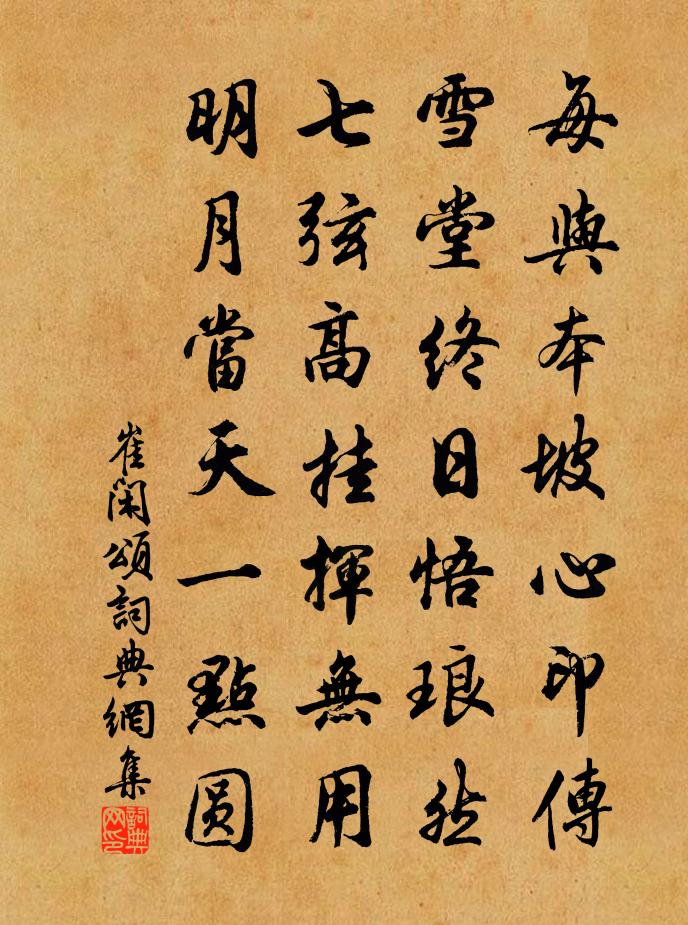 每與本坡心印傳
雪堂終日悟琅然
七弦高挂揮無用
明月當天一點圆
崔閑頌詞典網集
詞典
网印